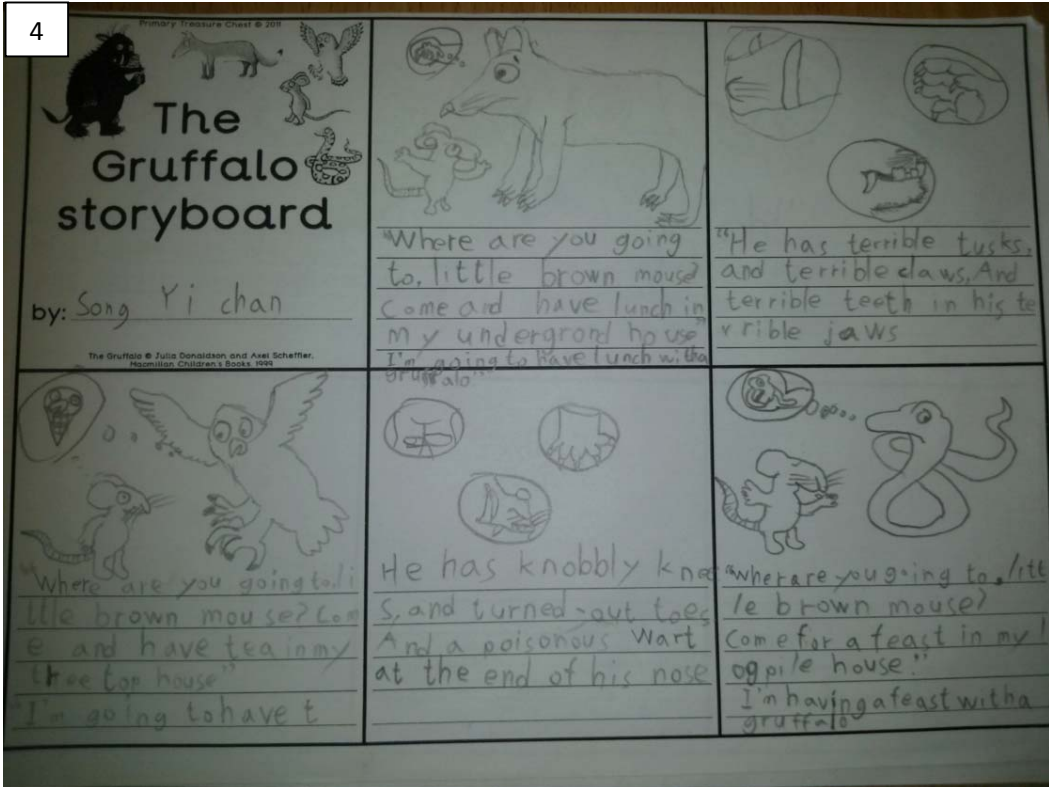 4
Primary Treasure Chest © 2011
The
Gruffalo
storyboard
by: Song Yi chan
The Gruffalo © Julia Donaldson and Axel Scheffler,
Macmillan Children's Books, 1999
"Where are you going
to, little brown mouse?
Come and have lunch in
my undergrond house"
I'm going to have lunch with a
gruffalo"
"He has terrible tusks,
and terrible claws, And
terrible teeth in his te
rrible jaws
"Where are you going to, li
ttle brown mouse? Com
e and have tea in my
tree top house"
"I'm going to have t
He has knobbly knee
s, and turned-out toes
And a poisonous wart
at the end of his nose
"Wher are you going to, litt
le brown mouse?
Come for a feast in my l
ogpile house."
I'm having a feast with a
gruffalo